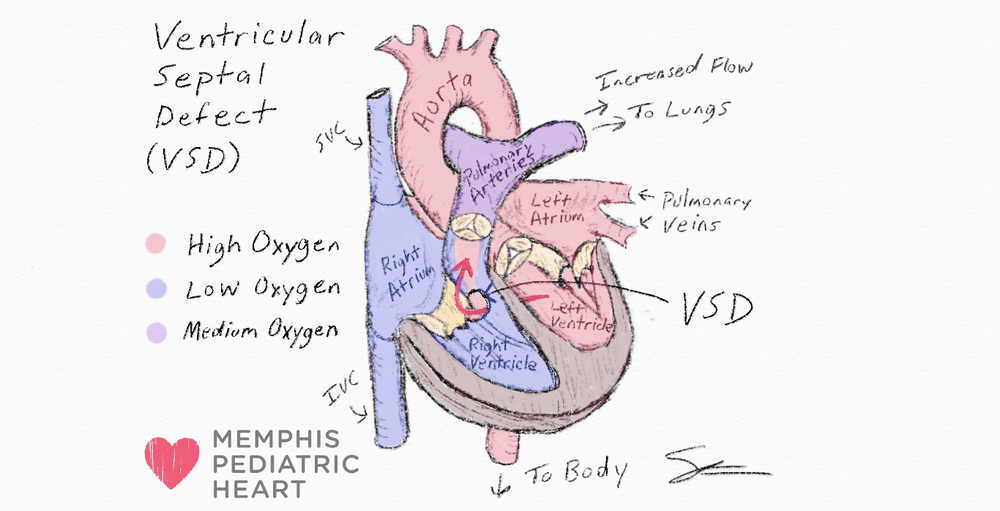 Ventricular
Septal
Defect
(VSD)
High Oxygen
Low Oxygen
Medium Oxygen
SVC
IVC
Aorta
Pulmonary
Arteries
Increased Flow
To Lungs
Left
Atrium
Pulmonary
Veins
Right
Atrium
Left
Ventricle
Right
Ventricle
VSD
To Body
MEMPHIS
PEDIATRIC
HEART